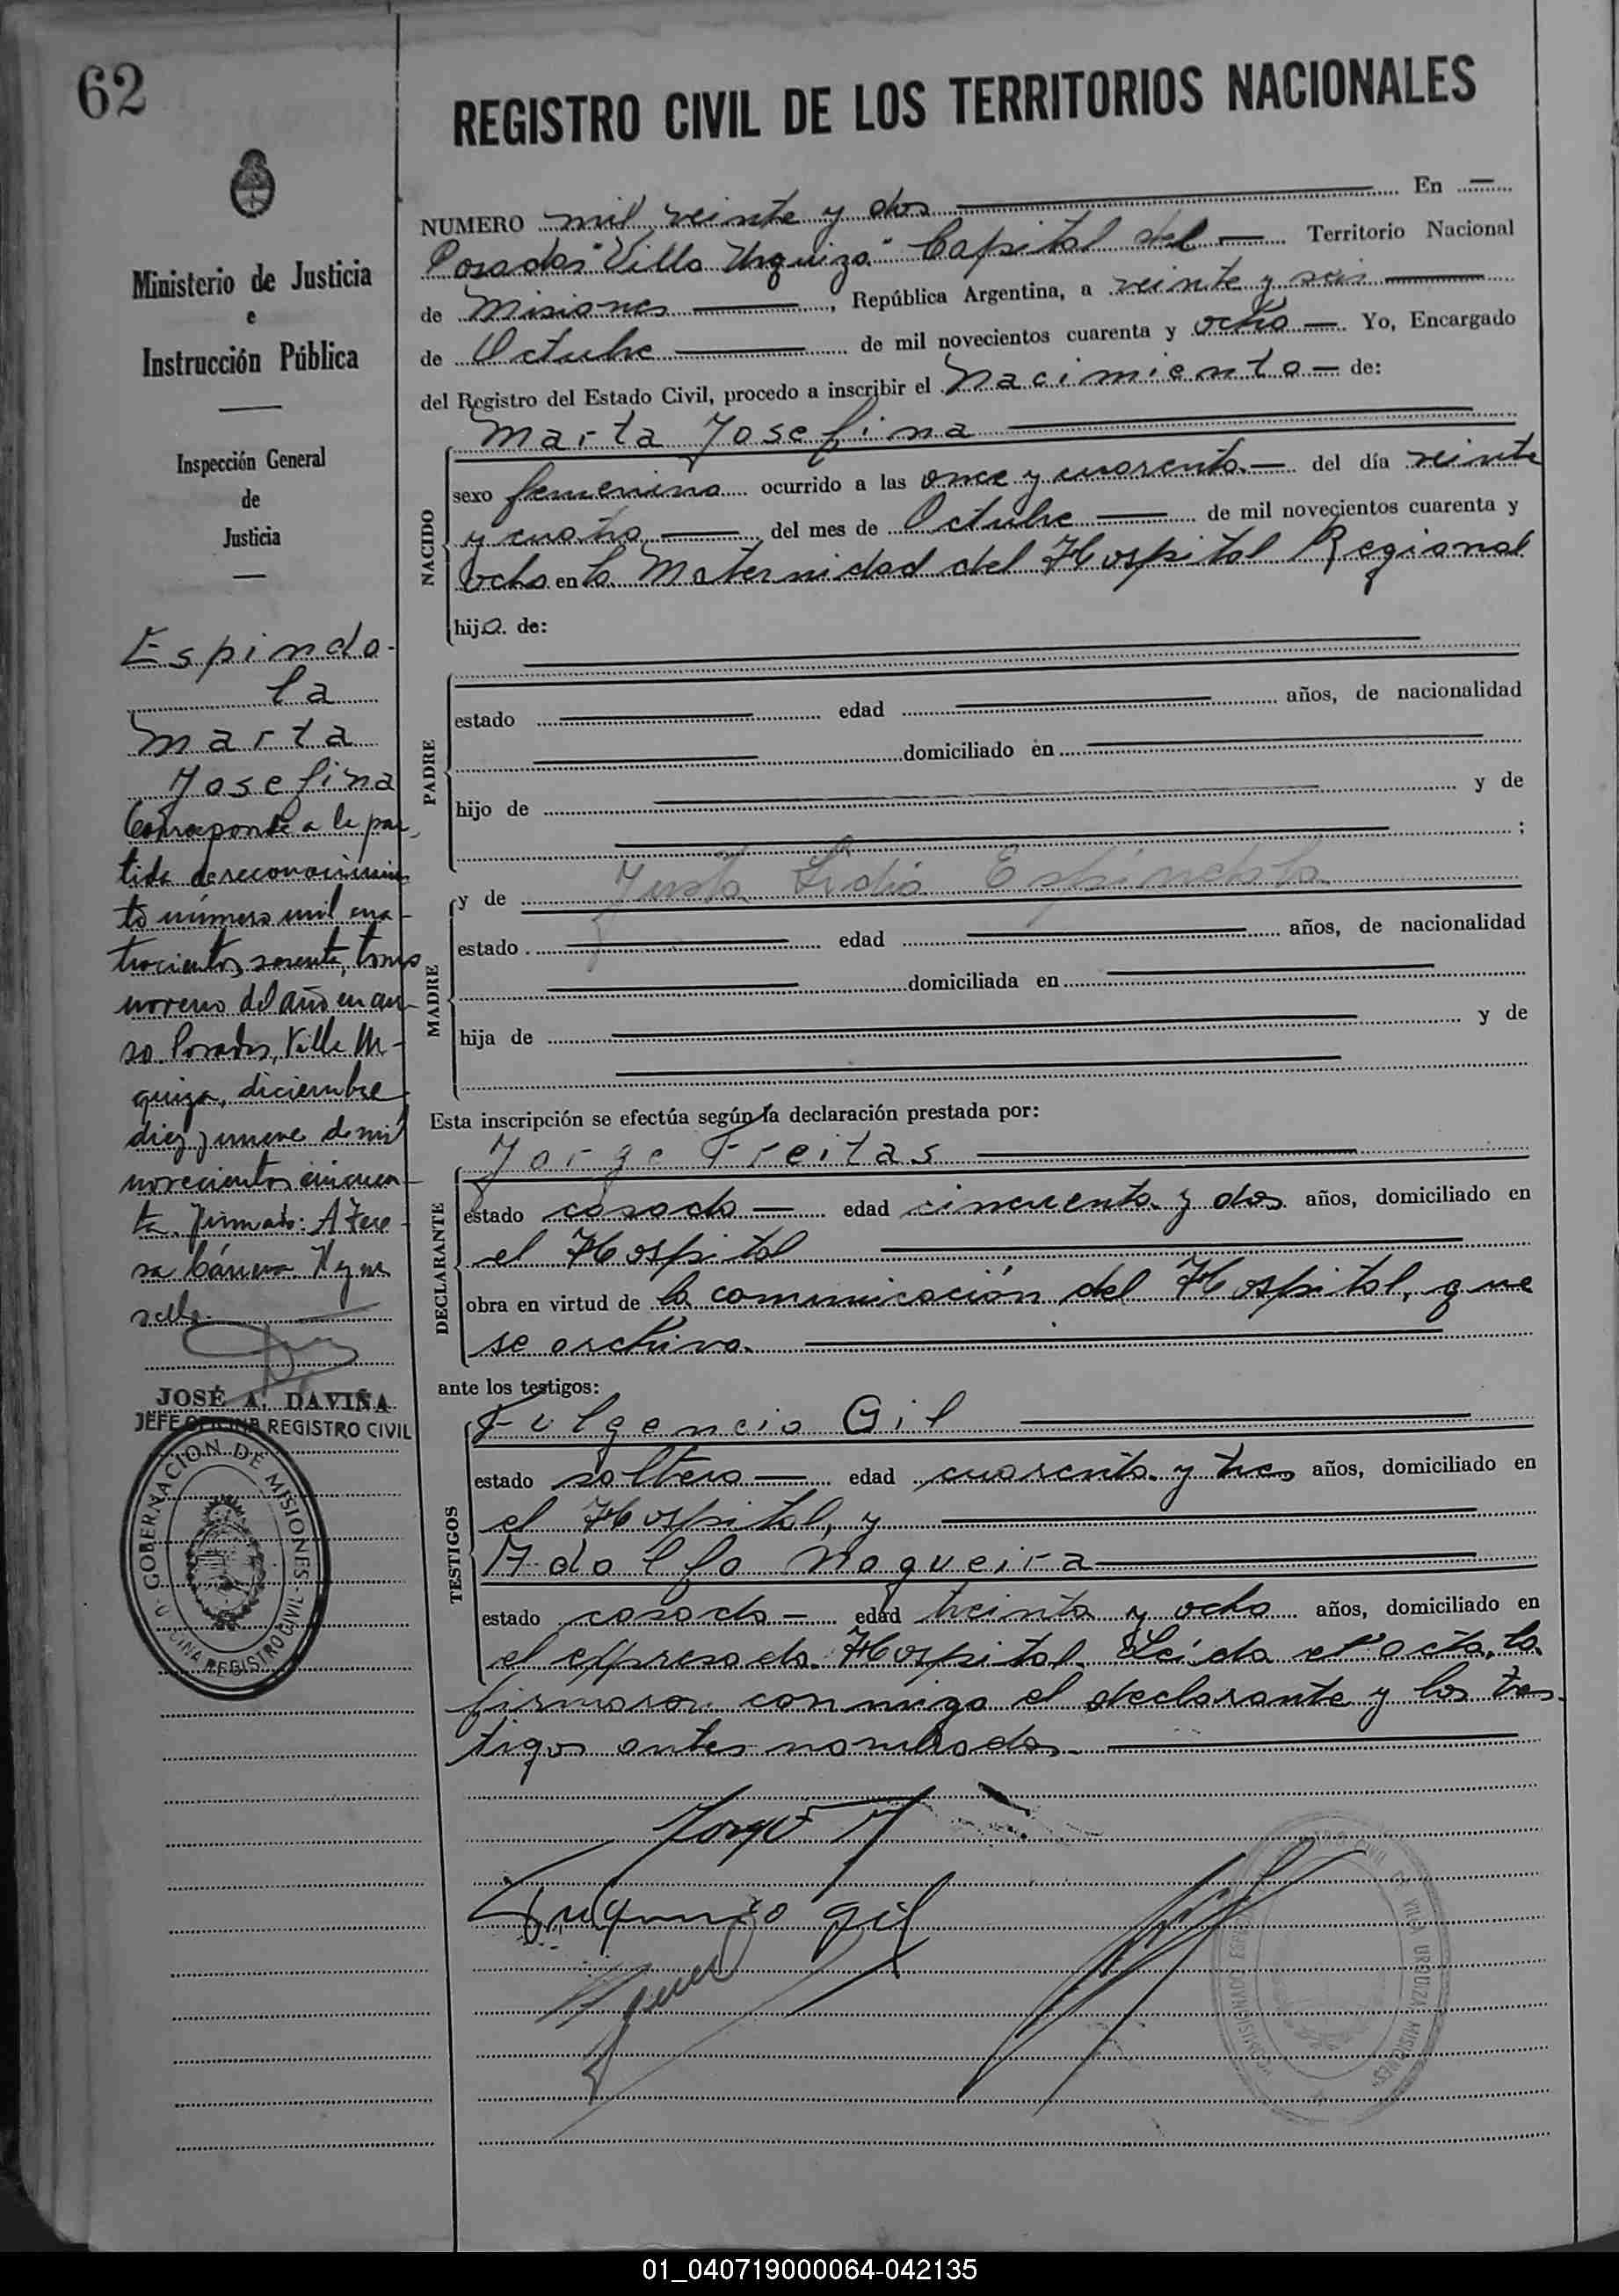 62
REGISTRO CIVIL DE LOS TERRITORIOS NACIONALES
Ministerio de Justicia
e
Instrucción Pública
Inspección General
de
Justicia
Espindo-
la
Marta
Josefina
Corresponde a la par-
tida de reconocimien
to número mil cua-
trocientos sesenta, tomo
noveno del año en cur-
so. Posadas, Villa Ur-
quiza, diciembre
diez y nueve de mil
novecientos cincuen-
ta. Firmado: A Tere-
sa Hay un
sello.
JOSÉ A. DAVIÑA
JEFE OFICINA REGISTRO CIVIL
GOBERNACION DE MISIONES
OFICINA REGISTRO CIVIL
NUMERO mil veinte y dos En
Posadas "Villa Urquiza" Capital del Territorio Nacional
de Misiones, República Argentina, a veinte y seis
de Octubre de mil novecientos cuarenta y ocho Yo, Encargado
del Registro del Estado Civil, procedo a inscribir el Nacimiento de:
NACIDO
Marta Josefina
sexo femenino ocurrido a las once y cuarenta del día veinte
y cuatro del mes de Octubre de mil novecientos cuarenta y
ocho en la Maternidad del Hospital Regional
hija de:
PADRE
estado edad años, de nacionalidad
domiciliado en
hijo de y de
;
MADRE
y de Justa Lidia Espindola
estado edad años, de nacionalidad
domiciliada en
hija de y de
Esta inscripción se efectúa según la declaración prestada por:
DECLARANTE
Jorge Freitas
estado casado edad cincuenta y dos años, domiciliado en
el Hospital
obra en virtud de la comunicación del Hospital, que
se archiva.
ante los testigos:
TESTIGOS
Fulgencio Gil
estado soltero edad cuarenta y tres años, domiciliado en
el Hospital, y
Adolfo Nogueira
estado casado edad treinta y ocho años, domiciliado en
el expresado Hospital. Leída el acta, la
firmaron conmigo el declarante y los tes-
tigos antes nombrados.
Jorge F
Fulgencio Gil
01_040719000064-042135